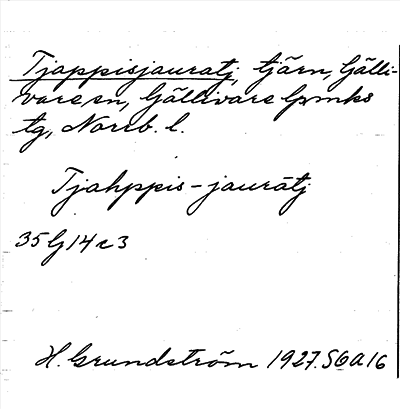 Tjappisjauratj, tjärn, Gälli-
vare sn, Gällivare lpmks
tg, Norrb. l.
Tjahppis-jaurātj
35 G 14 a 3
H. Grundström 1927. S6A16